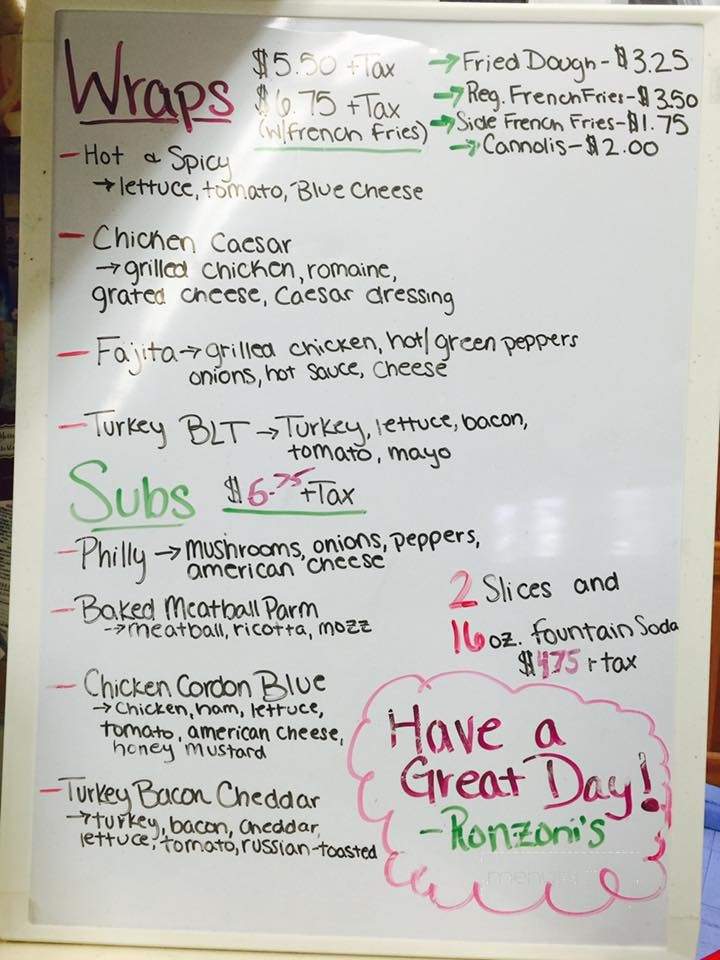 Wraps $5.50 + Tax
$6.75 + Tax
(w/french fries)
→ Fried Dough - $3.25
→ Reg. French Fries - $3.50
→ Side French Fries - $1.75
→ Cannolis - $2.00
- Hot & Spicy
→ lettuce, tomato, Blue Cheese
- Chicken Caesar
→ grilled chicken, romaine,
grated cheese, Caesar dressing
- Fajita → grilled chicken, hot/green peppers
onions, hot sauce, cheese
- Turkey BLT → Turkey, lettuce, bacon,
tomato, mayo
Subs $6.75 + Tax
- Philly → mushrooms, onions, peppers,
american cheese
- Baked Meatball Parm
→ meatball, ricotta, mozz
- Chicken Cordon Blue
→ Chicken, ham, lettuce,
tomato, american cheese,
honey mustard
- Turkey Bacon Cheddar
→ turkey, bacon, cheddar,
lettuce, tomato, russian - toasted
2 Slices and
16 oz. fountain Soda
$4.75 + tax
Have a
Great Day!
- Ronzoni's